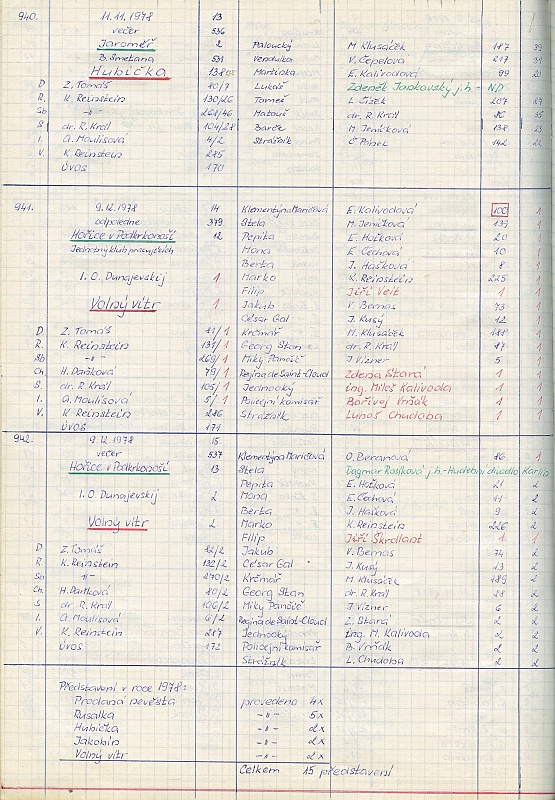 940. 11.11.1978 13
večer 536
Jaroměř 2 Paloucký M. Klusáček 187 39
B. Smetana 531 Vendulka V. Čepelová 217 31
Hubička 138 Martinka E. Kalivodová 99 20
D Z. Tomáš 80/7 Lukáš Zdeněk Jankovský j.h. - ND
R. K. Reinstein 130/26 Tomeš L. Čížek 207
Sb -"- 268/46 Matouš dr. R. Král 86 35
S dr. R. Král 104/28 Barče M. Jeníčková 138 23
I. A. Moulisová 4/2 Strážník Č. Pánek 142 22
V. K. Reinstein 285
Úvos 170
941. 9.12.1978 14 Klementýna Maričová E. Kalivodová 100 1
odpoledne 379 Stela M. Jeníčková 139 1
Hořice v Podkrkonoší 12 Pepita E. Hotková 20 1
Jednotný klub pracujících Mona E. Čechová 10 1
Berta J. Hašková 8 1
I. O. Dunajevskij 1 Marko K. Reinstein 225 1
Filip Jiří Veit 1 1
Volný vítr 1 Jakub V. Bernas 73 1
César Gal J. Kusý 12 1
D Z. Tomáš 11/1 Krčmář M. Klusáček 188 1
R. K. Reinstein 131/1 Georg Stan dr. R. Král 87 1
Sb -"- 269/1 Miky Pančič J. Vizner 5 1
Ch H. Daňková 79/1 Regina de Saint-Cloud Zdena Stará 1 1
S. dr. R. Král 105/1 Jednooký ing. Miloš Kalivoda 1 1
I. A. Moulisová 5/1 Policejní komisař Bořivoj Vrňák 1 1
V. K. Reinstein 286 Strážník Luboš Chudoba 1 1
Úvos 171
942. 9.12.1978 15
večer 537 Klementýna Maričová O. Beranová 86 1
Hořice v Podkrkonoší 13 Stela Dagmar Rosíková j.h.-Hudební divadlo Karlín
Pepita E. Hotková 21 2
I. O. Dunajevskij 2 Mona E. Čechová 11 2
Berta J. Hašková 9 2
Volný vítr 2 Marko K. Reinstein 226 2
Filip Jiří Škrdlant 1 1
D Z. Tomáš 12/2 Jakub V. Bernas 74 2
R. K. Reinstein 132/2 César Gal J. Kusý 13 2
Sb -"- 270/2 Krčmář M. Klusáček 189 2
Ch. H. Daňková 80/2 Georg Stan dr. R. Král 88 2
S dr. R. Král 106/2 Miky Pančič J. Vizner 6 2
I. A. Moulisová 6/2 Regina de Saint-Cloud Z. Stará 2 2
V. K. Reinstein 287 Jednooký ing. M. Kalivoda 2 2
Úvos 172 Policejní komisař B. Vrňák 2 2
Strážník L. Chudoba 2 2
Představení v roce 1978:
Prodaná nevěsta provedeno 4x
Rusalka -"- 5x
Hubička -"- 2x
Jakobín -"- 2x
Volný vítr -"- 2x
Celkem 15 představení